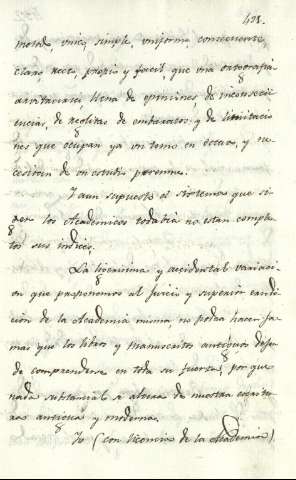 421.
metodo, unico, simple, uniforme, conveniente,
claro, recto, propio y facil, que una ortografia
arvitraria, llena de opiniones, de inconsecu
encias, de reglitas, de embarazos, y de limitacio
nes que ocupan ya un tomo en octavo, y ne
cesitan de un estudio perenne.
Y aun supuesto el sistema que si
guen los Academicos todabia no estan comple
tos sus indices.
La ligerisima y accidental variaci
on que proponemos al juicio y superior cen
de la Academia misma, no podra hacer ja
mas que los libros y manuscritos antiguos dejen
de comprenderse en toda su fuerza, por que
nada substancial se altera de nuestra escritu
ra antigua y moderna.
Yo (con licencia de la Academia)